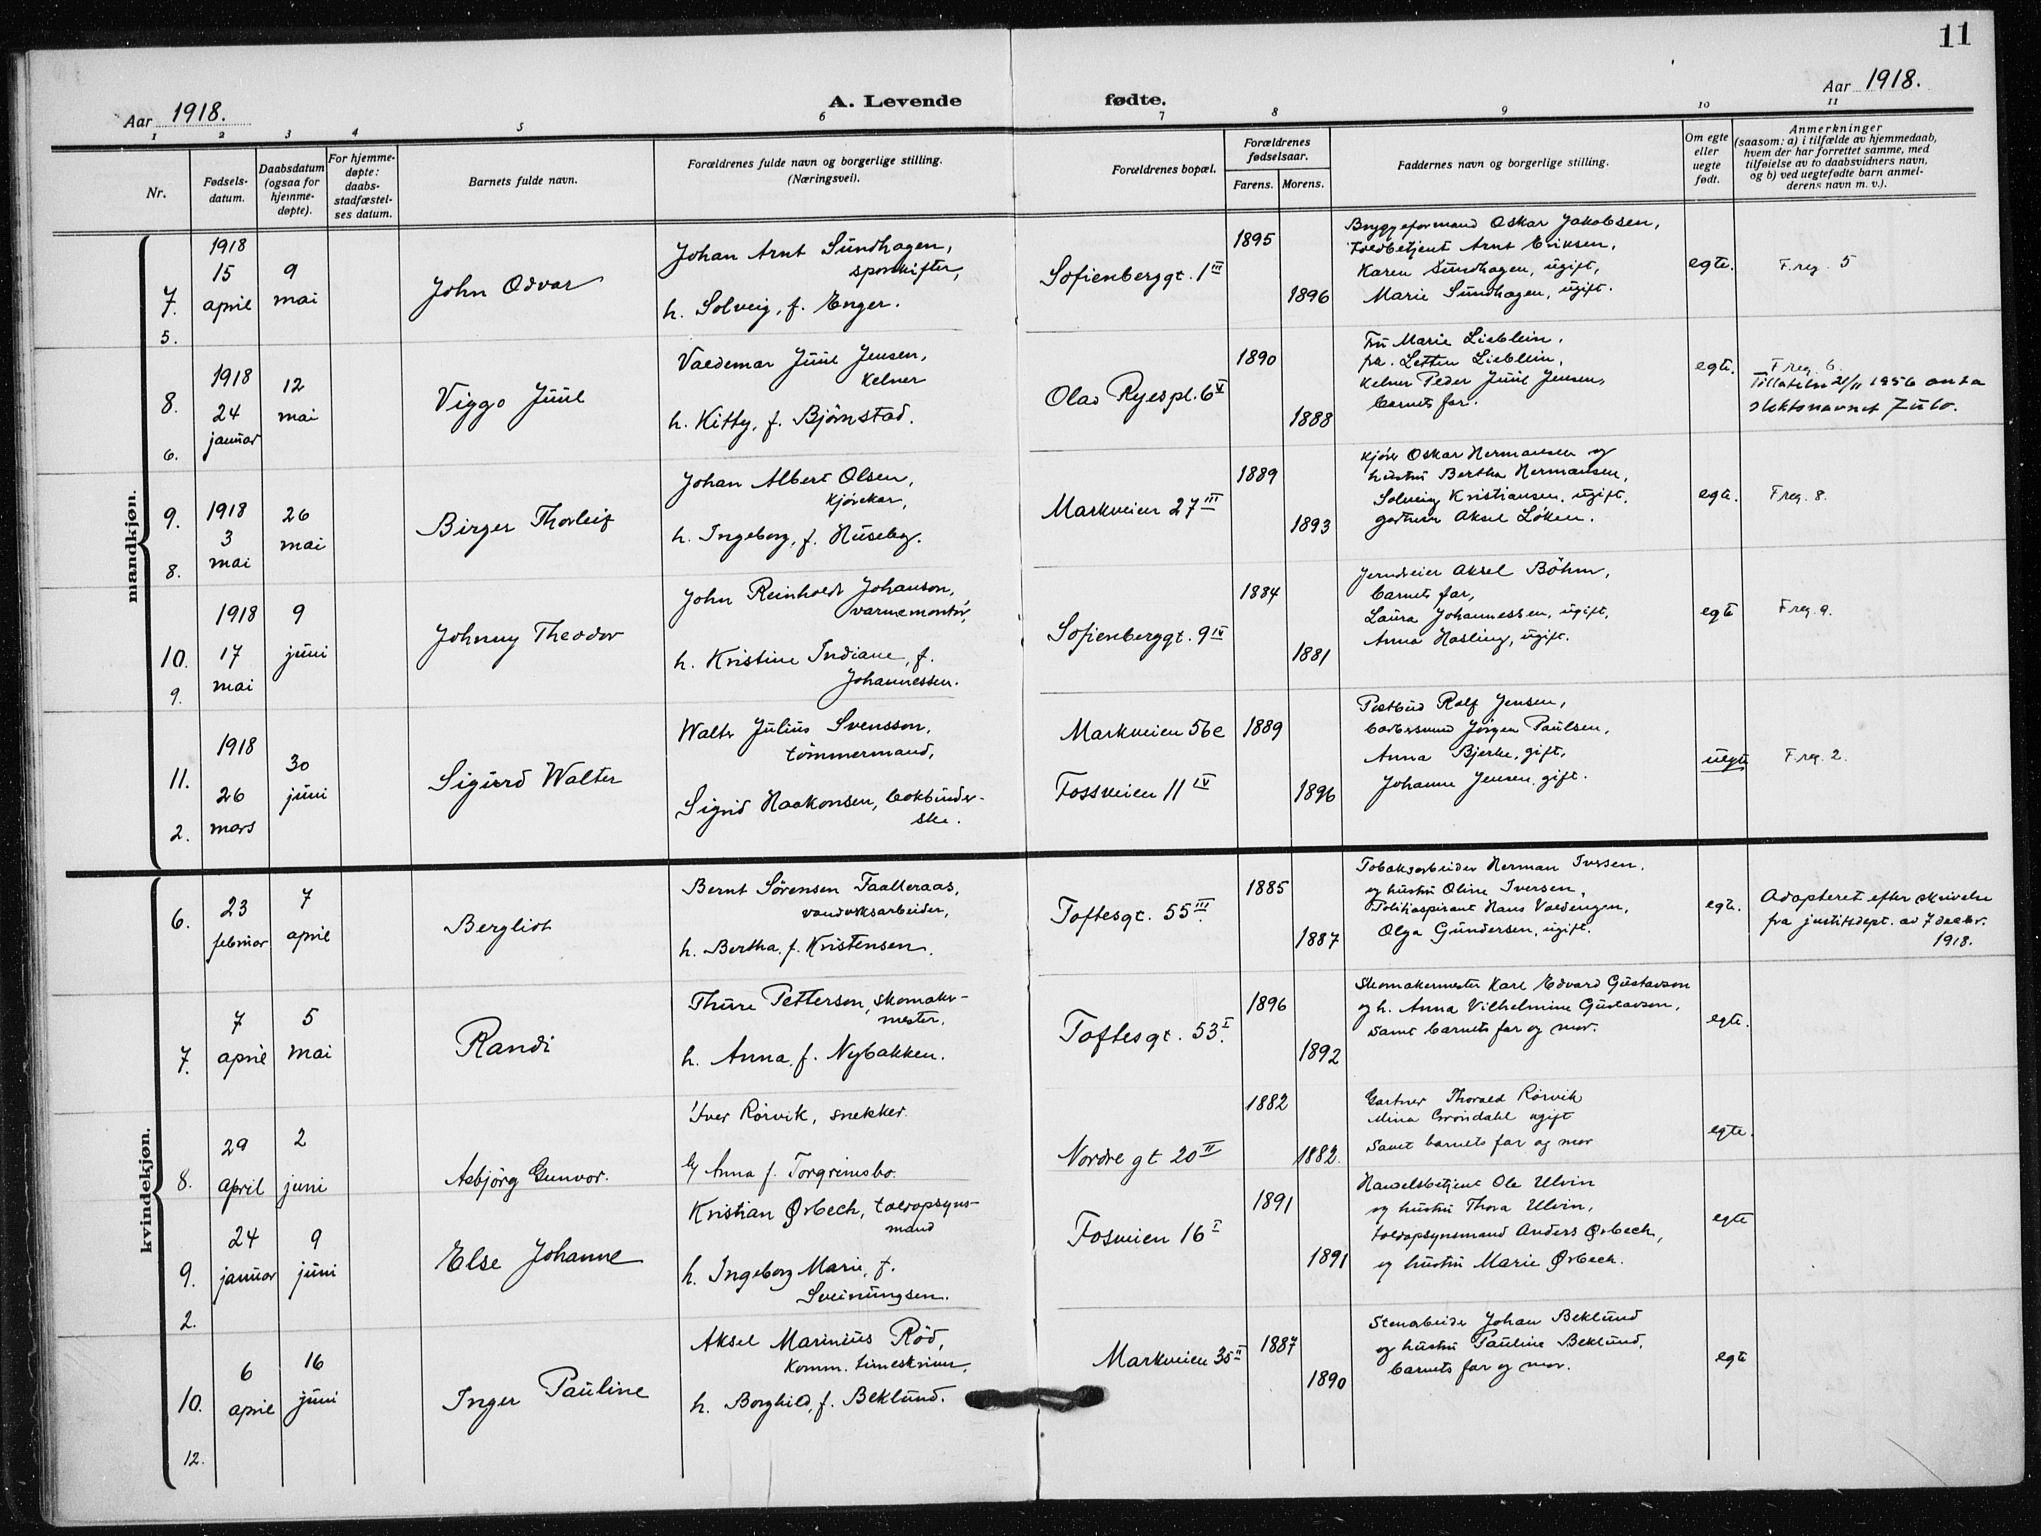 11
Aar 1918.
A. Levende fødte.
Aar 1918.
1 2 3 4 5 6 7 8 9 10 11
Nr.
Fødsels-
datum.
Daabsdatum
(ogsaa for
hjemme-
døpte).
For hjemme-
døpte:
daabs-
stadfæstel-
ses datum.
Barnets fulde navn.
Forældrenes fulde navn og borgerlige stilling.
(Næringsvei).
Forældrenes bopæl.
Forældrenes
fødselsaar.
Farens. Morens.
Faddernes navn og borgerlige stilling.
Om egte
eller
uegte
født.
Anmerkninger
(saasom: a) i tilfælde av hjemmedaab,
hvem der har forrettet samme, med
tilføielse av to daabsvidners navn,
og b) ved uegtefødte barn anmel-
derens navn m. v.).
mandkjøn.
7.
5.
1918
15
april
9
mai
John Odvar
Johan Arnt Sundhagen,
sporskifter,
h. Solveig, f. Enger.
Sofienberggt. 1 III
1895
1896
Bryggeformand Oskar Jakobsen,
Toldbetjent Arnt Eriksen,
Karen Sundhagen, ugift,
Marie Sundhagen, ugift.
egte.
F.reg. 5
8.
6.
1918
24
januar
12
mai
Viggo Juul
Valdemar Juul Jensen,
kelner
h. Kitty, f. Bjørnstad.
Olav Ryespl. 6 V
1890
1888
Fru Marie Lieblein,
frk. Letten Lieblein,
kelner Peder Juul Jensen,
barnets far.
egte.
F.reg. 6.
Tillatelse 21/11 1956 om ta
slektsnavnet Zulo.
9.
8.
1918
3
mai
26
mai
Birger Thorleif
Johan Albert Olsen,
kjørekar,
h. Ingeborg, f. Huseby.
Markveien 27 III
1889
1893
kjører Oskar Hermansen og
hustru Bertha Hermansen,
Solveig Kristiansen, ugift,
gartner Aksel Løken.
egte.
F.reg. 8.
10.
9.
1918
17
mai
9
juni
Johnny Theodor
John Reinholdt Johanson,
varmemontør,
h. Kristine Indiane, f.
Johannessen.
Sofienberggt. 9 IV
1884
1881
Jerndreier Aksel Böhm,
barnets far,
Laura Johannessen, ugift,
Anna Hasling, ugift.
egte
F.reg. 9.
11.
2.
1918
26
mars
30
juni
Sigurd Walter
Walter Julius Svensson,
tømmermand,
Sigrid Haakonsen, bokbinder-
ske.
Markveien 56c
Fossveien 11 IV
1889
1896
Postbud Rolf Jensen,
Jørgen Paulsen,
Anna Bjerke, gift,
Johanne Jensen, gift.
uegte
F.reg. 2.
kvindekjøn.
6.
23
februar
7
april
Bergliot
Bernt Sørensen Taalleraas,
vandverksarbeider,
h. Bertha, f. Kristensen.
Toftesgt. 55 III
1885
1887
Tobaksarbeider Herman Iversen,
og hustru Oline Iversen,
Politiaspirant Hans Valdengen,
Olga Gundersen, ugift.
egte.
Adopteret efter skrivelse
fra justitsdept. av 7 decbr.
1918.
7.
7
april
5
mai
Randi
Thure Petterson, skomaker-
mester,
h. Anna, f. Nybakken.
Toftesgt. 53 I
1896
1892
Skomakermester Karl Edvard Gustavson
og h. Anna Vilhelmine Gustavson,
samt barnets far og mor.
egte.
8.
29
april
2
juni
Asbjörg Gunvor.
Iver Rörvik, snekker.
h/ Anna f. Torgrimsbo.
Nordre gt 20 II
1882
1882.
Gartner Thorald Rörvik
Mina Gröndahl ugift
samt barnets far og mor
egte.
9.
2.
24
januar
9
juni
Else Johanne
Kristian Ørbech, toldopsyns-
mand
h. Ingeborg Marie, f.
Sveinungsen.
Fosveien 16 I
1891
1891
Handelsbetjent Ole Ulvin
og hustru Thora Ulvin,
toldopsynsmand Anders Ørbech,
og hustru Marie Ørbech.
egte
10.
12.
6
april
16
juni
Inger Pauline
Aksel Marinius Röd,
komm. timeskriver,
h. Borghild, f. Beklund.
Markveien 35 II
1887
1890
Stenarbeider Johan Beklund
og hustru Pauline Beklund,
barnets far og mor.
egte